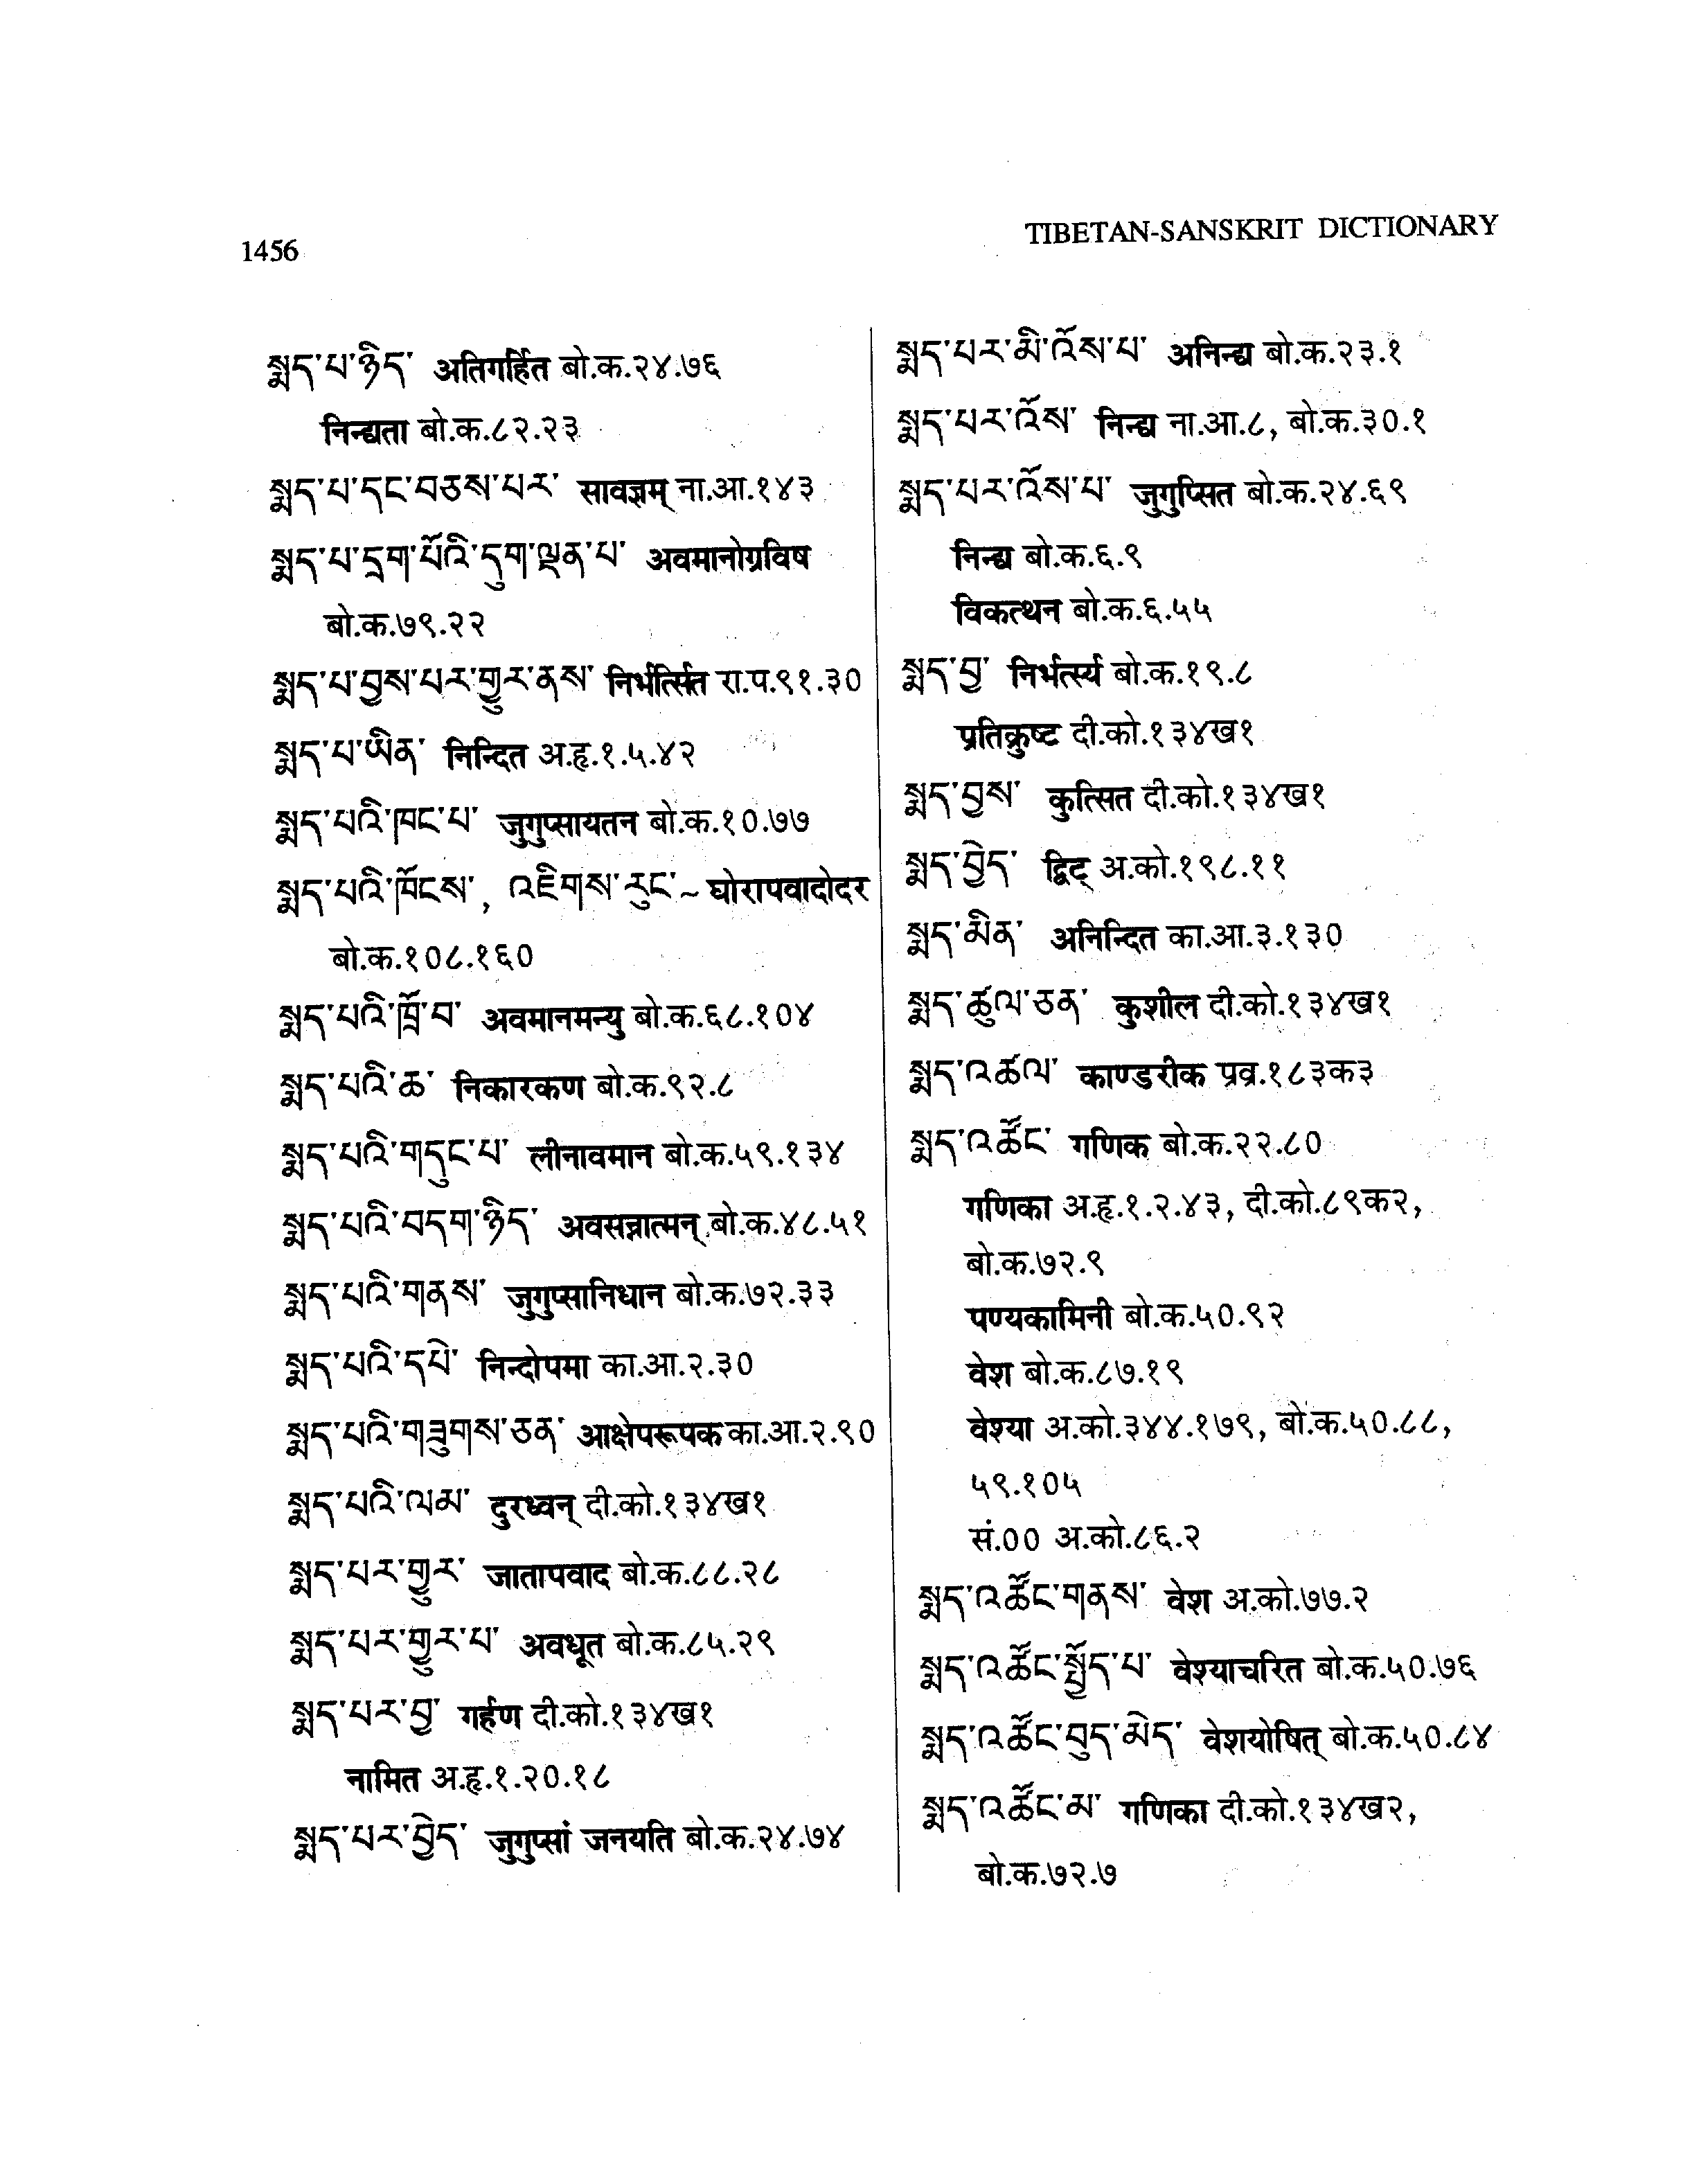 1456
TIBETAN-SANSKRIT DICTIONARY
སྨད་པ་ཉིད་ अतिगर्हित बो.क.२४.७६
निन्द्यता बो.क.८२.२३
སྨད་པ་དང་བཅས་པར་ सावज्ञम् ना.आ.१४३
སྨད་པ་དྲག་པོའི་དུག་ལྡན་པ་ अवमानोग्रविष
बो.क.७९.२२
སྨད་པ་བྱས་པར་གྱུར་ནས་ निर्भर्त्सित रा.प.९१.३०
སྨད་པ་ཡིན་ निन्दित अ.हृ.१.५.४२
སྨད་པའི་ཁང་པ་ जुगुप्सायतन बो.क.१०.७७
སྨད་པའི་ཁོངས་, འཇིགས་རུང་~ घोरापवादोदर
बो.क.१०८.१६०
སྨད་པའི་ཁྲོ་བ་ अवमानमन्यु बो.क.६८.१०४
སྨད་པའི་ཆ་ निकारकण बो.क.९२.८
སྨད་པའི་གདུང་པ་ लीनावमान बो.क.५९.१३४
སྨད་པའི་བདག་ཉིད་ अवसन्नात्मन् बो.क.४८.५१
སྨད་པའི་གནས་ जुगुप्सानिधान बो.क.७२.३३
སྨད་པའི་དཔེ་ निन्दोपमा का.आ.२.३०
སྨད་པའི་གཟུགས་ཅན་ आक्षेपरूपक का.आ.२.९०
སྨད་པའི་ལམ་ दुरध्वन् दी.को.१३४ख१
སྨད་པར་གྱུར་ जातापवाद बो.क.८८.२८
སྨད་པར་གྱུར་པ་ अवधूत बो.क.८५.२९
སྨད་པར་བྱ་ गर्हण दी.को.१३४ख१
नामित अ.हृ.१.२०.१८
སྨད་པར་བྱེད་ जुगुप्सां जनयति बो.क.२४.७४
སྨད་པར་མི་འོས་པ་ अनिन्द्य बो.क.२३.१
སྨད་པར་འོས་ निन्द्य ना.आ.८, बो.क.३०.१
སྨད་པར་འོས་པ་ जुगुप्सित बो.क.२४.६९
निन्द्य बो.क.६.९
विकत्थन बो.क.६.५५
སྨད་བྱ་ निर्भर्त्स्य बो.क.१९.८
प्रतिक्रुष्ट दी.को.१३४ख१
སྨད་བྱས་ कुत्सित दी.को.१३४ख१
སྨད་བྱེད་ द्विट् अ.को.१९८.११
སྨད་མིན་ अनिन्दित का.आ.३.१३०
སྨད་ཚུལ་ཅན་ कुशील दी.को.१३४ख१
སྨད་འཚལ་ काण्डरीक प्रव्र.१८३क३
སྨད་འཚོང་ गणिक बो.क.२२.८०
गणिका अ.हृ.१.२.४३, दी.को.८९क२,
बो.क.७२.९
पण्यकामिनी बो.क.५०.९२
वेश बो.क.८७.१९
वेश्या अ.को.३४४.१७९, बो.क.५०.८८,
५९.१०५
सं.०० अ.को.८६.२
སྨད་འཚོང་གནས་ वेश अ.को.७७.२
སྨད་འཚོང་སྤྱོད་པ་ वेश्याचरित बो.क.५०.७६
སྨད་འཚོང་བུད་མེད་ वेशयोषित् बो.क.५०.८४
སྨད་འཚོང་མ་ गणिका दी.को.१३४ख२,
बो.क.७२.७